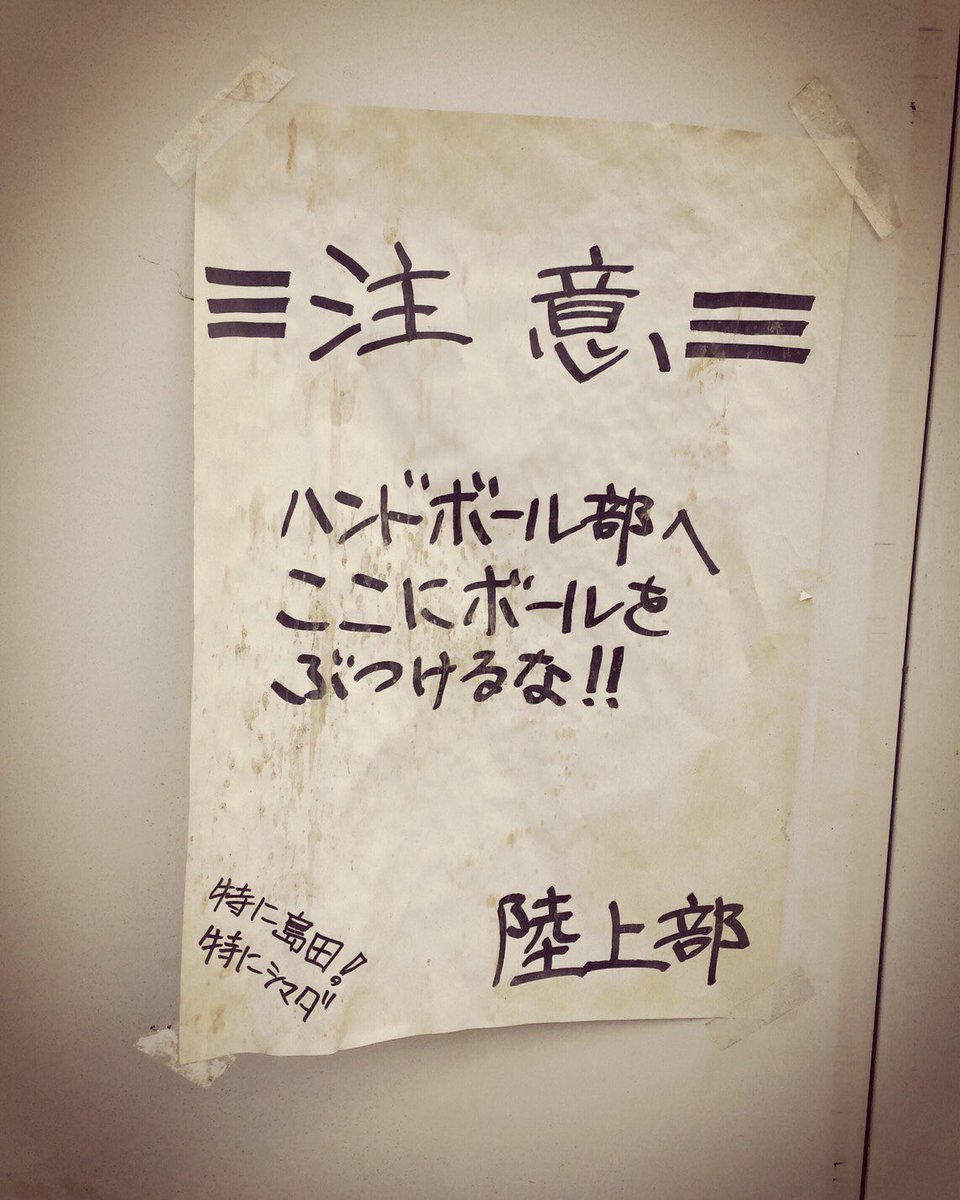 ≡注意≡
ハンドボール部へ
ここにボールを
ぶつけるな!!
陸上部
特に島田!
特にシマダ